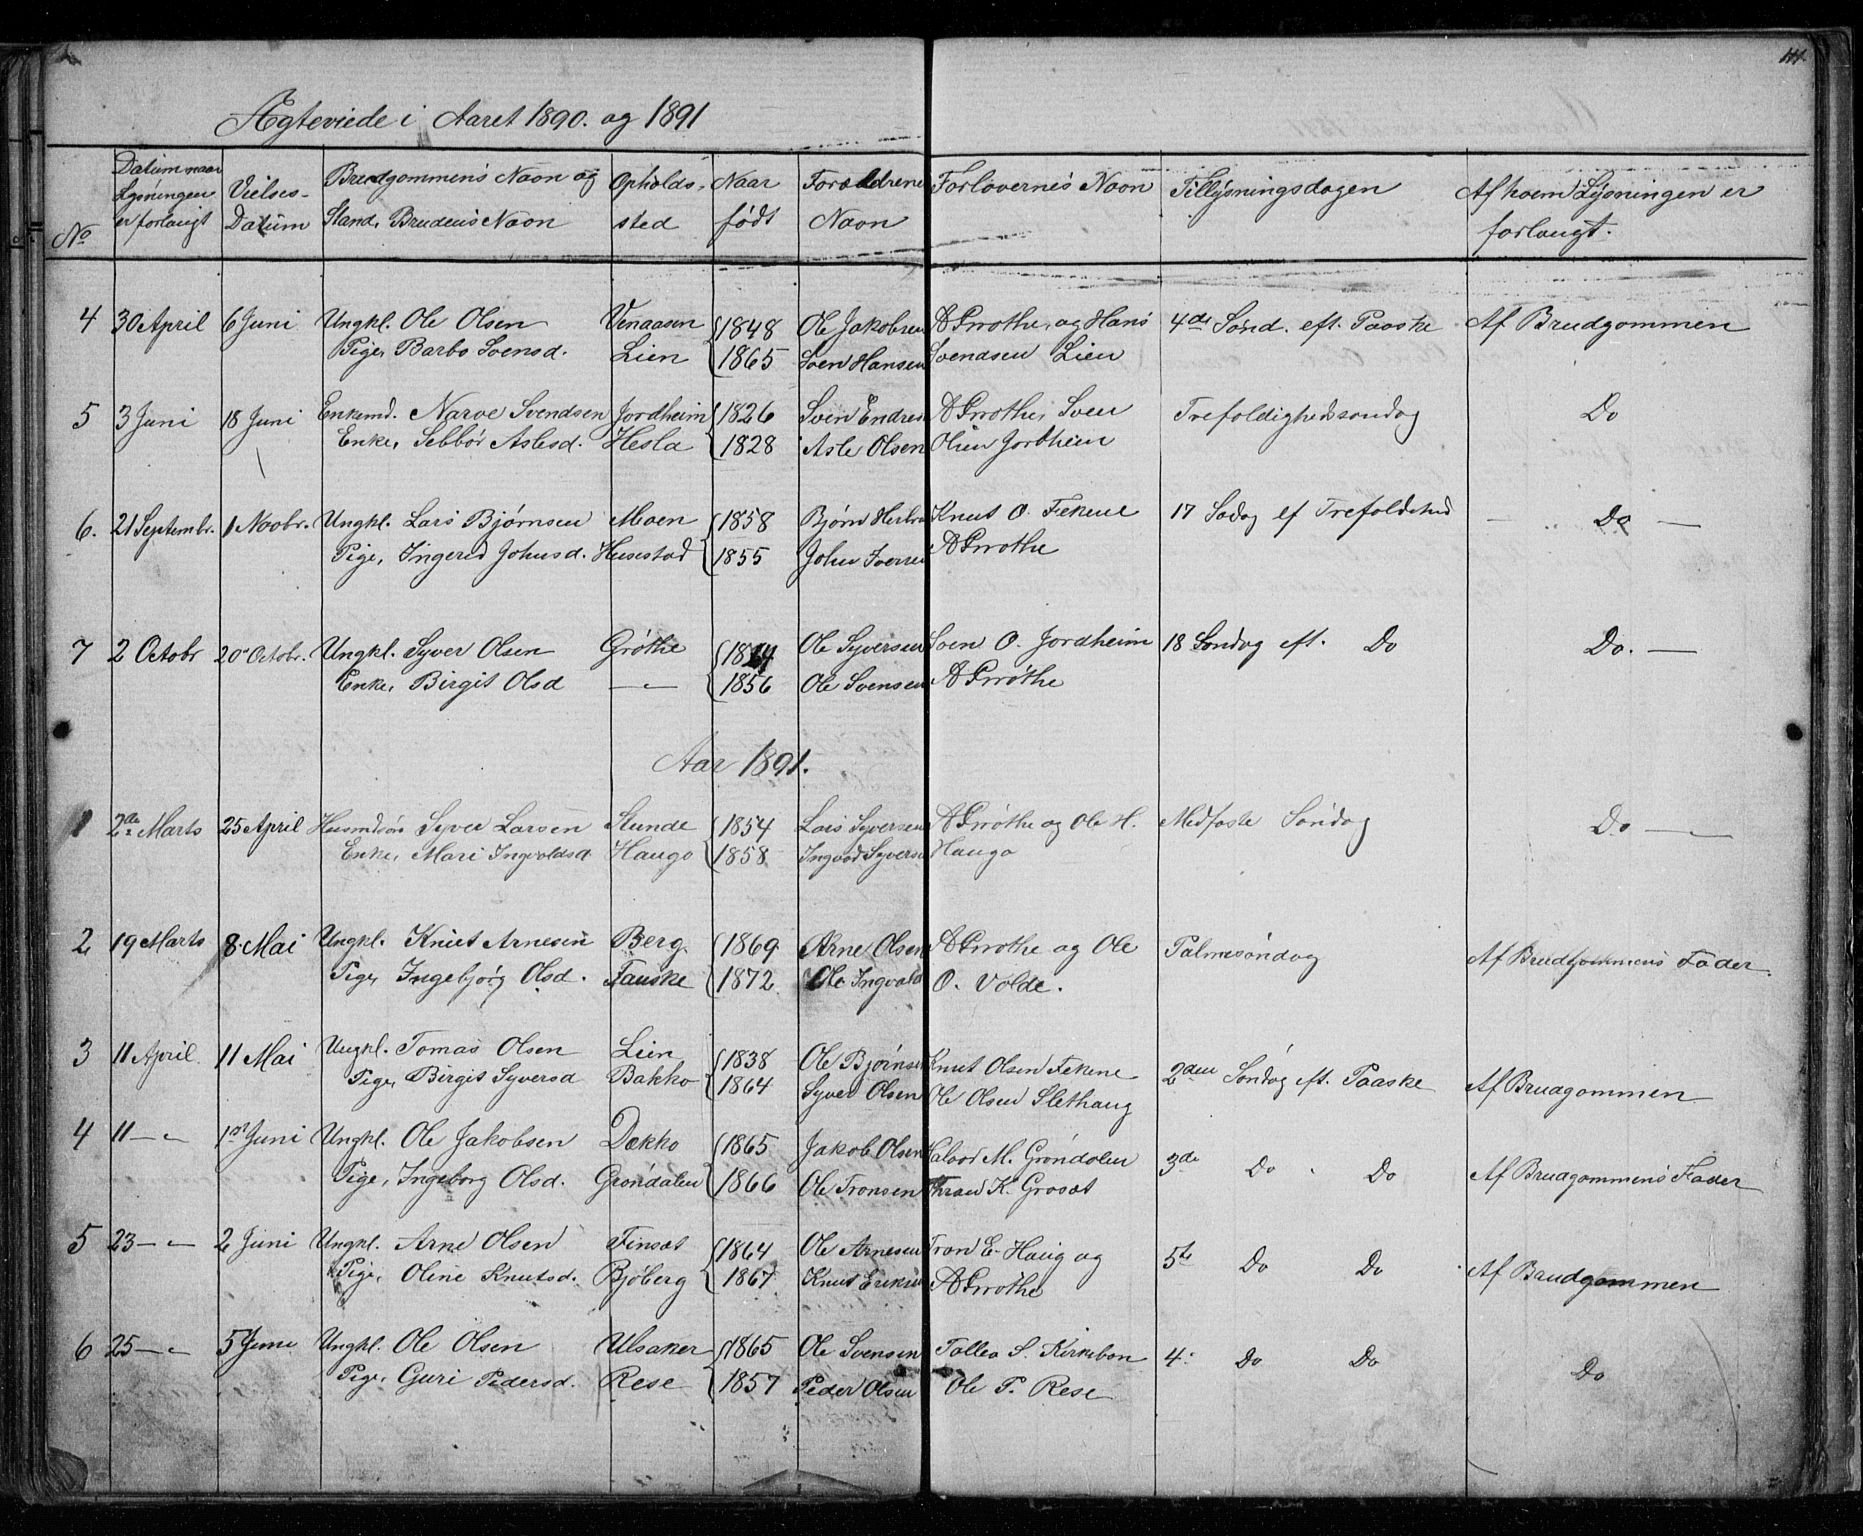 111.
Ægteviede i Aaret 1890. og 1891
No
Datum naar Lysningen er forlangt
Vielses-Datum
Brudgommens Navn og Stand, Brudens Navn
Opholds-sted
Naar født
Forældrene Navn
Forlovernes Navn
Tillysningsdagen
Af hvem Lysningen er forlangt.
4 30 April 6 Juni Ungkl. Ole Olsen Venaasen 1848 Ole Jakobsen A Grøthe, og Hans 4de Sønd. eft. Paaske Af Brudgommen
Pige, Barbo Svensd. Lien 1865 Sven Hansen Svendsen Lien
5 3 Juni 18 Juni Enkemd. Narve Svendsen Jordheim 1826 Sven Endres A Grøthe, Sven Trefoldighedssøndag Do
Enke, Sebbør Aslesd. Hesla 1828 Asle Olsen Olsen Jordheim
6. 21 Septembr. 1 Novbr. Ungkl. Lars Bjørnsen Moen 1858 Bjørn Knut O. Fekene 17 Sødag ef — „ Do —
Pige, Ingered Johnsd. Husestad 1855 John Iversen A Grøthe
7 2 Octobr 20 Octobr. Ungkl. Syver Olsen Grøthe Ole Syversen Sven O. Jordheim 18 Søndag eft. Do Do. —
Enke, Birgit Olsd — „ — 1856 Ole Svensen A Grøthe
Aar 1891.
1 2de Marts 25 April Husmdsøn Syver Larsen Slunde 1854 Lars Syversen A Grøthe og Ole H. Medfaste Søndag Do — „ —
Enke, Mari Ingvaldsd Haugo 1858 Ingvad Syvers Haugo
2 19 Marts 8. Mai Ungkl. Knut Arnesen Berg 1869 Arne Olsen A Grøthe og Ole Palmesøndag Af Brudgommens Fader.
Pige, Ingebjørg Olsd. Fauske 1872 Ole Ingvald O. Volde.
3 11 April 11 Mai Ungkl. Tomas Olsen Lien 1838 Ole Bjørnse Knut Olsen Fekene 2den Søndag eft. Paaske Af Brudgommen
Pige, Birgit Syversd Bakko 1864 Syver Olsen Ole Olsen Slethaug
4 11 — „ 1st Juni Ungkl. Ole Jakobsen Dækko 1865 Jakob Olsen Halvor M. Grøndalen 3de Do . Do Af Brudgommens Fader
Pige, Ingeborg Olsd. Grøndalen 1866 Ole Tronsen Thran K. Grøsæt
5 23 — „ 2 Juni Ungkl. Arne Olsen Finsæt 1864 Ole Arnesen Tron E. Haug og 5te Do Do Af Brudgommen
Pige, Oline Knutsd. Bjøberg 1867 Knut Erikse A Grøthe
6 25 — „ 5 Juni Ungkl. Ole Olsen Ulsaker 1865 Ole Svensen Tollev S. Kirkebøn 4: Do Do Do
Pige, Guri Pedersd. Rese 1857 Peder Olsen Ole P. Rese